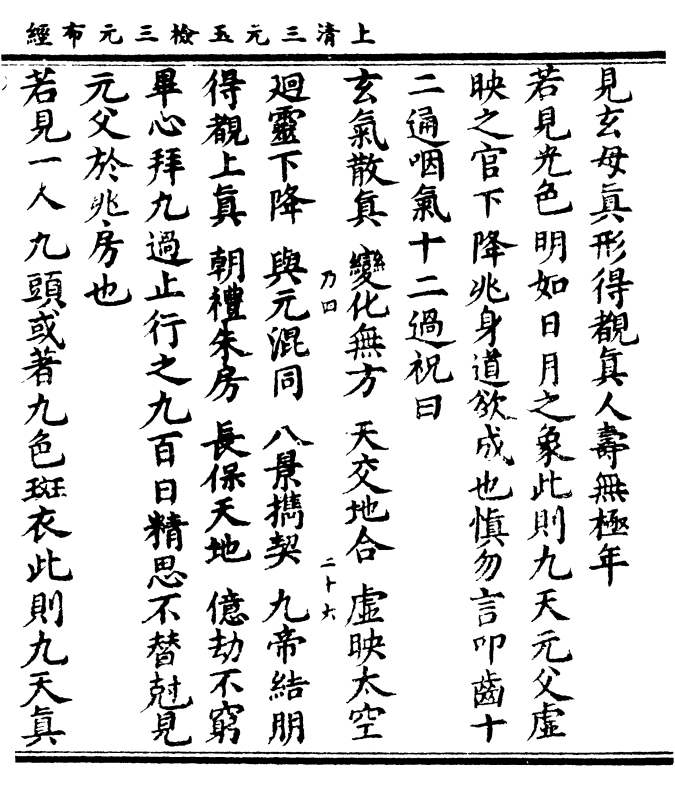 上清三元五檢三元布經
見玄母真形得覩真人壽無極年
若見光色明如日月之象此則九天元父虛
映之官下降兆身道欲成也慎勿言叩齒十
二通咽氣十二過祝曰
玄氣散真 變化無方 天交地合 虛映太空
乃四
二十六
廻靈下降 與元混同 八景攜契 九帝結朋
得覩上真 朝禮朱房 長保天地 億劫不窮
畢心拜九過止行之九百日精思不替尅見
元父於兆房也
若見一人九頭或著九色斑衣此則九天真